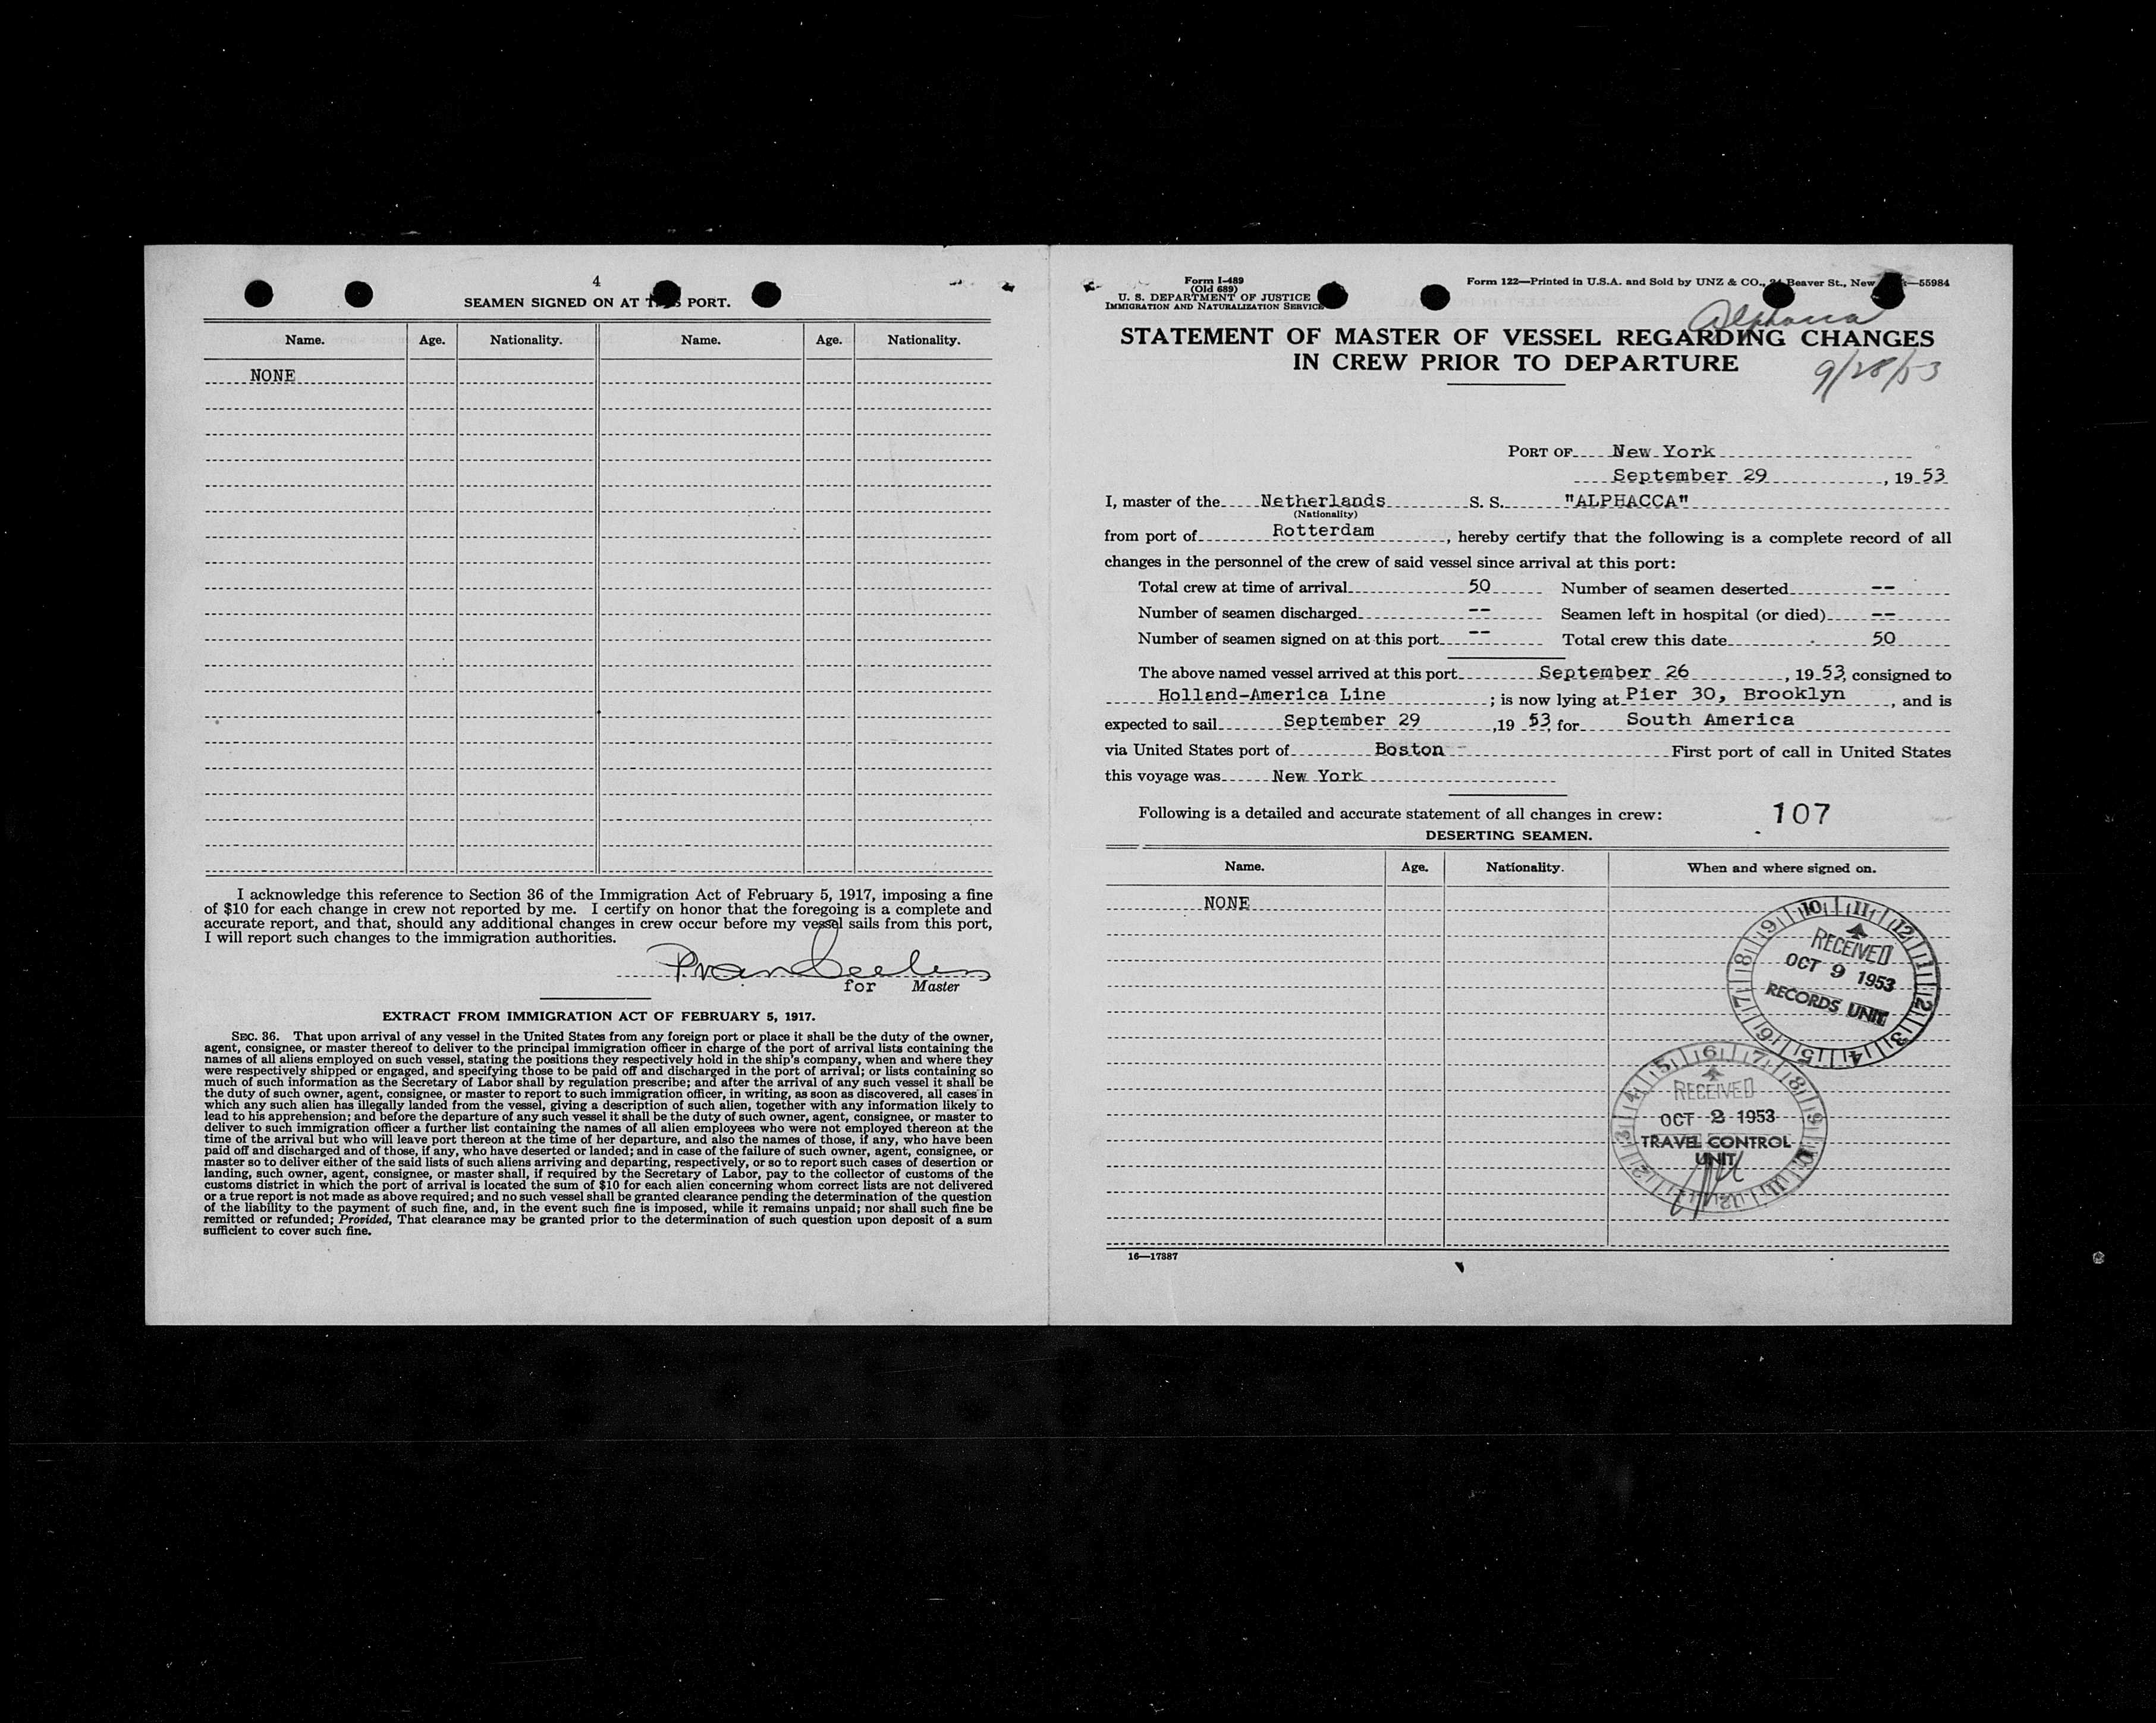 4
SEAMEN SIGNED ON AT THIS PORT.
Name. Age. Nationality. Name. Age. Nationality.
NONE
I acknowledge this reference to Section 36 of the Immigration Act of February 5, 1917, imposing a fine
of $10 for each change in crew not reported by me. I certify on honor that the foregoing is a complete and
accurate report, and that, should any additional changes in crew occur before my vessel sails from this port,
I will report such changes to the immigration authorities.
for Master
EXTRACT FROM IMMIGRATION ACT OF FEBRUARY 5, 1917.
SEC. 36. That upon arrival of any vessel in the United States from any foreign port or place it shall be the duty of the owner,
agent, consignee, or master thereof to deliver to the principal immigration officer in charge of the port of arrival lists containing the
names of all aliens employed on such vessel, stating the positions they respectively hold in the ship's company, when and where they
were respectively shipped or engaged, and specifying those to be paid off and discharged in the port of arrival; or lists containing so
much of such information as the Secretary of Labor shall by regulation prescribe; and after the arrival of any such vessel it shall be
the duty of such owner, agent, consignee, or master to report to such immigration officer, in writing, as soon as discovered, all cases in
which any such alien has illegally landed from the vessel, giving a description of such alien, together with any information likely to
lead to his apprehension; and before the departure of any such vessel it shall be the duty of such owner, agent, consignee, or master to
deliver to such immigration officer a further list containing the names of all alien employees who were not employed thereon at the
time of the arrival but who will leave port thereon at the time of her departure, and also the names of those, if any, who have been
paid off and discharged and of those, if any, who have deserted or landed; and in case of the failure of such owner, agent, consignee, or
master so to deliver either of the said lists of such aliens arriving and departing, respectively, or so to report such cases of desertion or
landing, such owner, agent, consignee, or master shall, if required by the Secretary of Labor, pay to the collector of customs of the
customs district in which the port of arrival is located the sum of $10 for each alien concerning whom correct lists are not delivered
or a true report is not made as above required; and no such vessel shall be granted clearance pending the determination of the question
of the liability to the payment of such fine, and, in the event such fine is imposed, while it remains unpaid; nor shall such fine be
remitted or refunded; Provided, That clearance may be granted prior to the determination of such question upon deposit of a sum
sufficient to cover such fine.
Form I-489
(Old 689)
U. S. DEPARTMENT OF JUSTICE
IMMIGRATION AND NATURALIZATION SERVICE
Form 122—Printed in U.S.A. and Sold by UNZ & CO., 24 Beaver St., New —55984
Alphacca
STATEMENT OF MASTER OF VESSEL REGARDING CHANGES
IN CREW PRIOR TO DEPARTURE
9/28/53
PORT OF New York
September 29, 1953
I, master of the Netherlands S. S. "ALPHACCA"
(Nationality)
from port of Rotterdam, hereby certify that the following is a complete record of all
changes in the personnel of the crew of said vessel since arrival at this port:
Total crew at time of arrival 50 Number of seamen deserted --
Number of seamen discharged -- Seamen left in hospital (or died) --
Number of seamen signed on at this port -- Total crew this date 50
The above named vessel arrived at this port September 26, 1953, consigned to
Holland-America Line; is now lying at Pier 30, Brooklyn, and is
expected to sail September 29, 1953, for South America
via United States port of Boston First port of call in United States
this voyage was New York
Following is a detailed and accurate statement of all changes in crew: 107
DESERTING SEAMEN.
Name. Age. Nationality. When and where signed on.
NONE
RECEIVED
OCT 9 1953
RECORDS UNIT
RECEIVED
OCT 2 1953
TRAVEL CONTROL
UNIT
16—17387